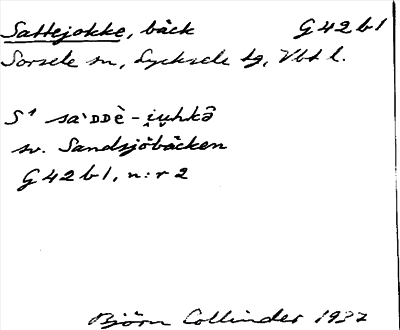 Sattejokke, bäck G42b1
Sorsele sn, Lycksele tg, Vbt l.
S¹ sa`ᴅᴅè-i̯u̯hkə̑
sv. Sandsjöbäcken
G42b1, n:r 2
Björn Collinder 1937